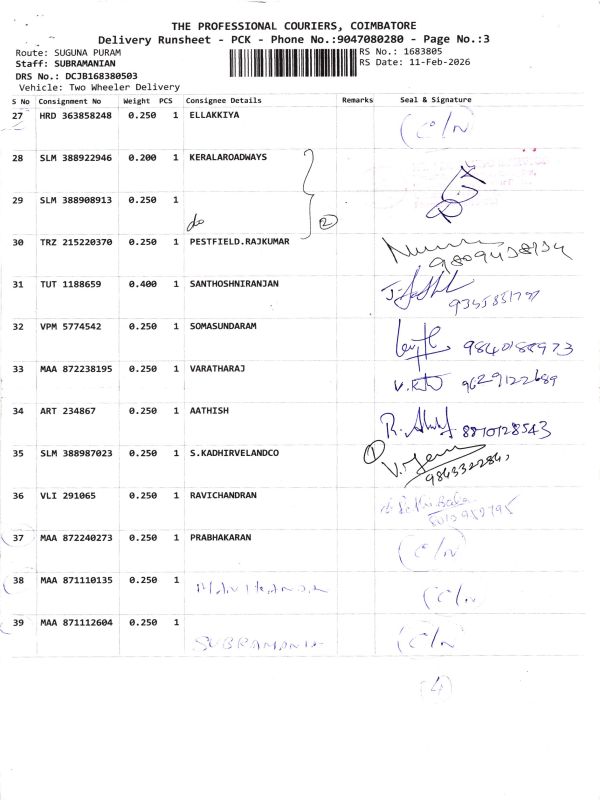 THE PROFESSIONAL COURIERS, COIMBATORE
Delivery Runsheet - PCK - Phone No.:9047080280 - Page No.:3
Route: SUGUNA PURAM
RS No.: 1683805
Staff: SUBRAMANIAN
RS Date: 11-Feb-2026
DRS No.: DCJB168380503
Vehicle: Two Wheeler Delivery
S No Consignment No Weight PCS Consignee Details Remarks Seal & Signature
27 HRD 363858248 0.250 1 ELLAKKIYA (C/N)
28 SLM 388922946 0.200 1 KERALAROADWAYS
29 SLM 388908913 0.250 1 do (2)
30 TRZ 215220370 0.250 1 PESTFIELD.RAJKUMAR
31 TUT 1188659 0.400 1 SANTHOSHNIRANJAN
32 VPM 5774542 0.250 1 SOMASUNDARAM
33 MAA 872238195 0.250 1 VARATHARAJ 9629122689
34 ART 234867 0.250 1 AATHISH 8870128543
35 SLM 388987023 0.250 1 S.KADHIRVELANDCO (1)
36 VLI 291065 0.250 1 RAVICHANDRAN
37 MAA 872240273 0.250 1 PRABHAKARAN (C/N)
38 MAA 871110135 0.250 1 (C/N)
39 MAA 871112604 0.250 1 (C/N)
(4)